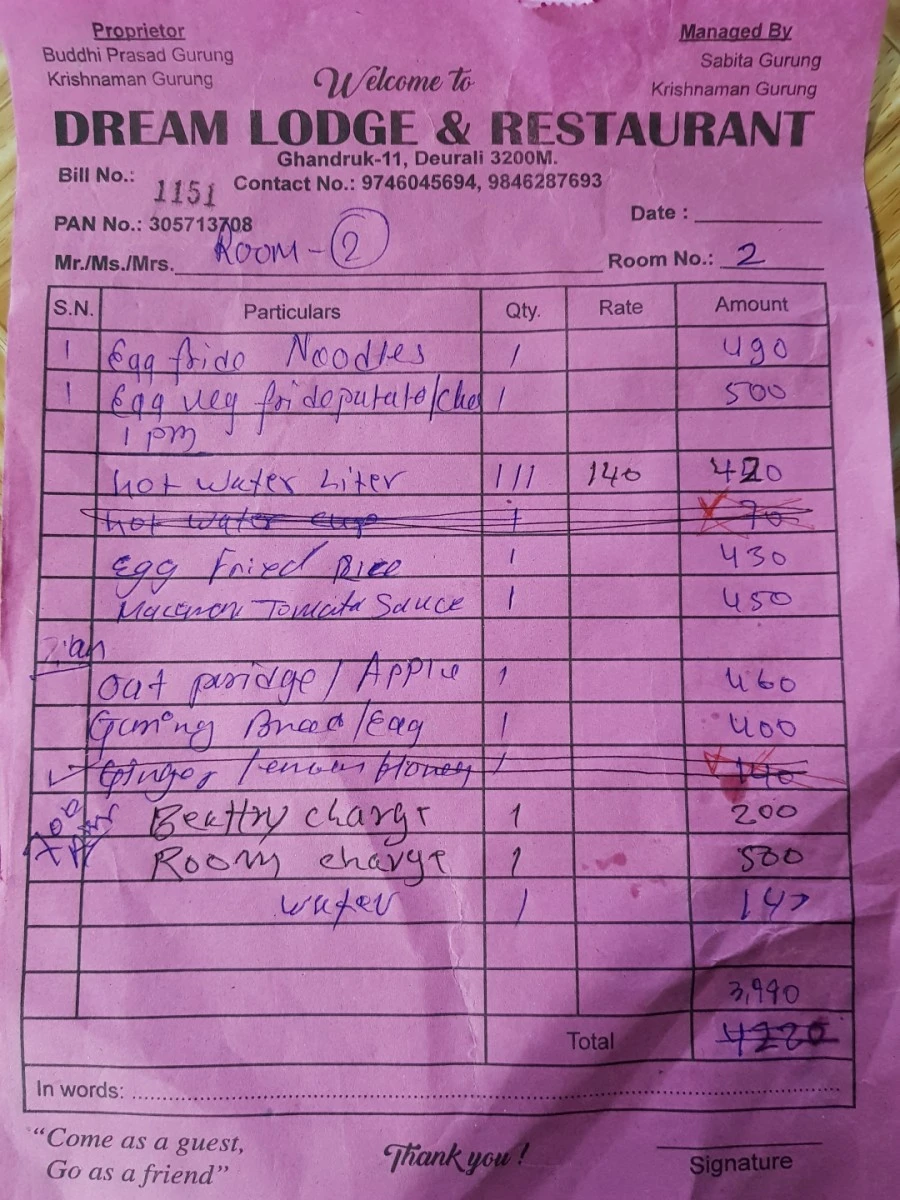 Proprietor
Buddhi Prasad Gurung
Krishnaman Gurung
Managed By
Sabita Gurung
Krishnaman Gurung
Welcome to
DREAM LODGE & RESTAURANT
Ghandruk-11, Deurali 3200M.
Bill No.: 1151 Contact No.: 9746045694, 9846287693
PAN No.: 305713708 Date :
Mr./Ms./Mrs. Room - 2 Room No.: 2
S.N. Particulars Qty. Rate Amount
1 Egg frido Noodles 1 490
1 Egg veg fridoputato/che 1 500
1 pm
hot water Liter 111 140 420
hot water cup 1 70
Egg Fried Rice 1 430
Macaron Tomato Sauce 1 450
Out poridge / Apple 1 460
Gurung Bread/Egg 1 400
Ginger lemon Honey 1 140
Beattry charge 1 200
Room charge 1 500
water 1
3,990
Total 4220
In words:
"Come as a guest,
Go as a friend"
Thank you !
Signature